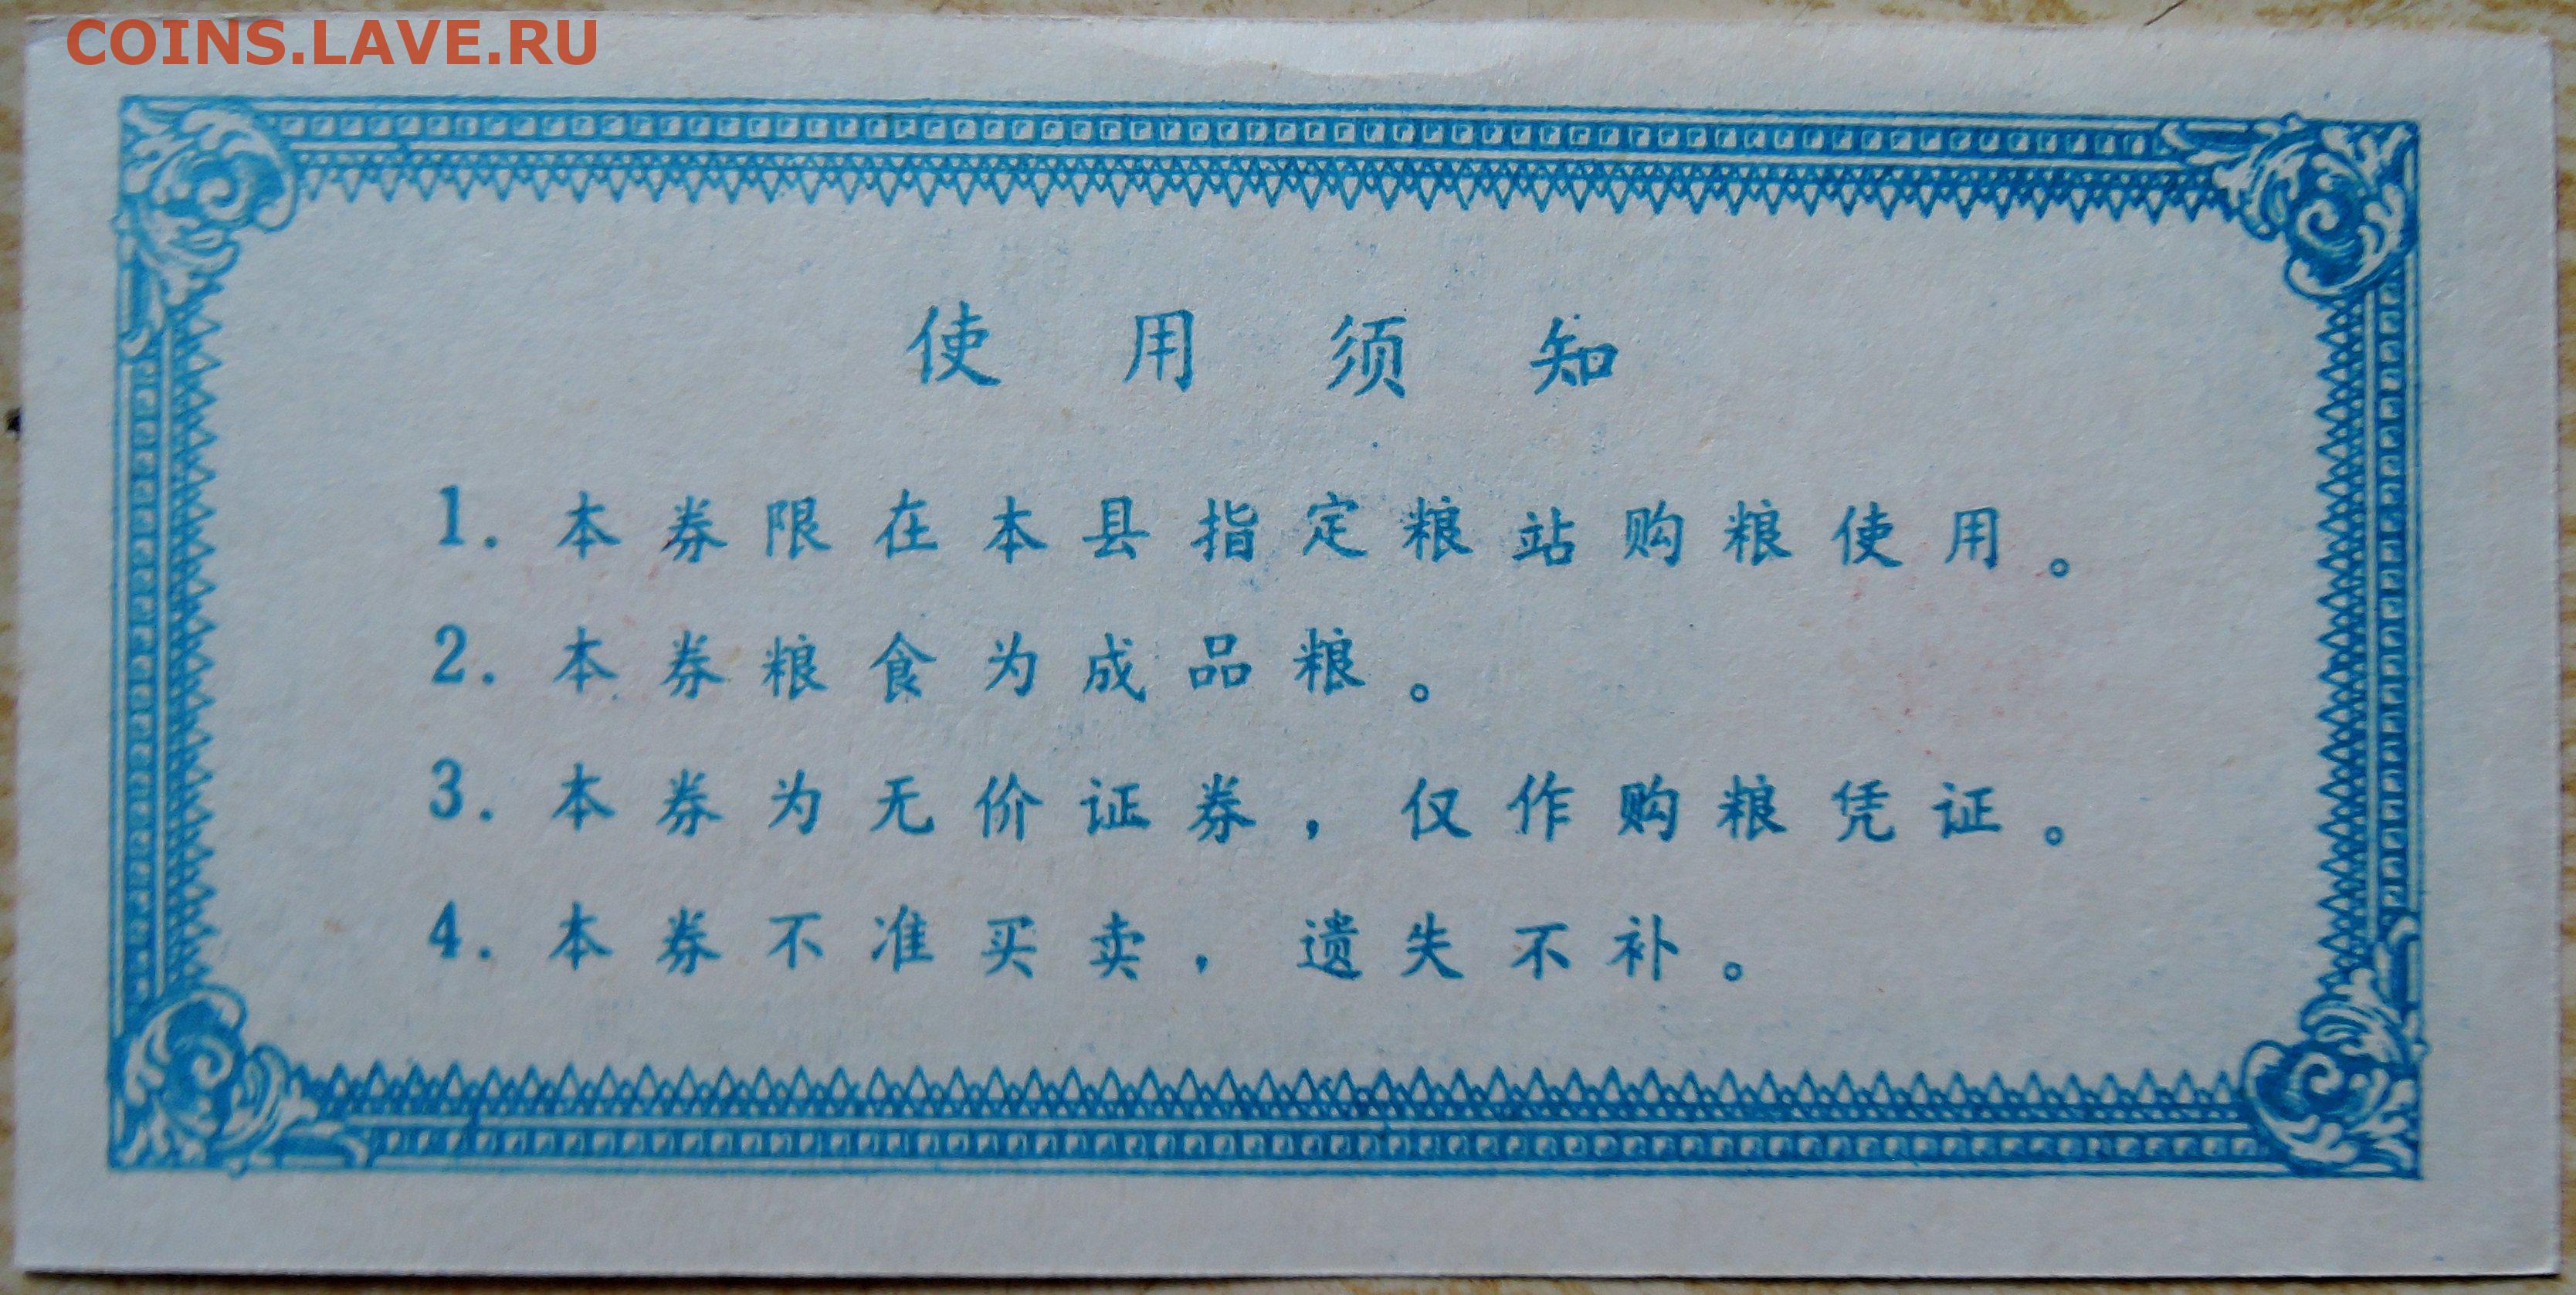 COINS.LAVE.RU
使用须知
1. 本券限在本县指定粮站购粮使用。
2. 本券粮食为成品粮。
3. 本券为无价证券，仅作购粮凭证。
4. 本券不准买卖，遗失不补。